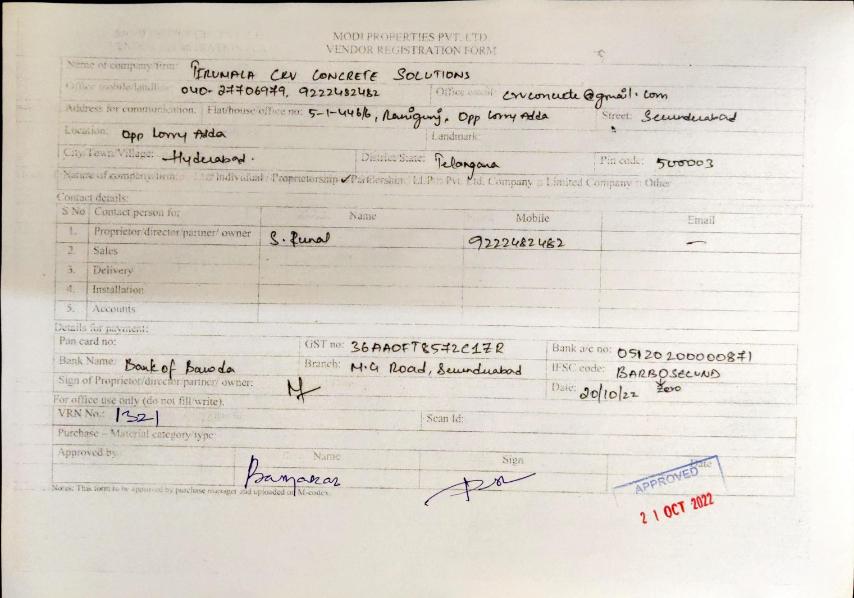 MODI PROPERTIES PVT. LTD.
VENDOR REGISTRATION FORM
Name of company/firm: TIRUMALA CRV CONCRETE SOLUTIONS
Office mobile/landline: 040-27706979, 9222482482 Office email: crvconcrete@gmail.com
Address for communication. Flat/house/office no: 5-1-446/6, Ranigunj, Opp Lorry Adda Street: Secunderabad
Location: Opp Lorry Adda Landmark:
City/Town/Village: Hyderabad. District/State: Telangana Pin code: 500003
Nature of company/firm: Individual / Proprietorship ✓Partnership LLP Pvt. Ltd. Company Limited Company Other
Contact details:
S No Contact person for Name Mobile Email
1. Proprietor/director/partner/ owner S. Kunal 9222482482 —
2. Sales
3. Delivery
4. Installation
5. Accounts
Details for payment:
Pan card no: GST no: 36AAOFT8572C1ZR Bank a/c no: 05120200000871
Bank Name: Bank of Baroda Branch: M.G Road, Secunderabad IFSC code: BARB0SECUND
Zero
Sign of Proprietor/director/partner/ owner: Date: 20/10/22
For office use only (do not fill/write).
VRN No.: 1321 Scan Id:
Purchase – Material category/type:
Approved by Name Sign Date
APPROVED
21 OCT 2022
Notes: This form to be approved by purchase manager and uploaded on M-codex.